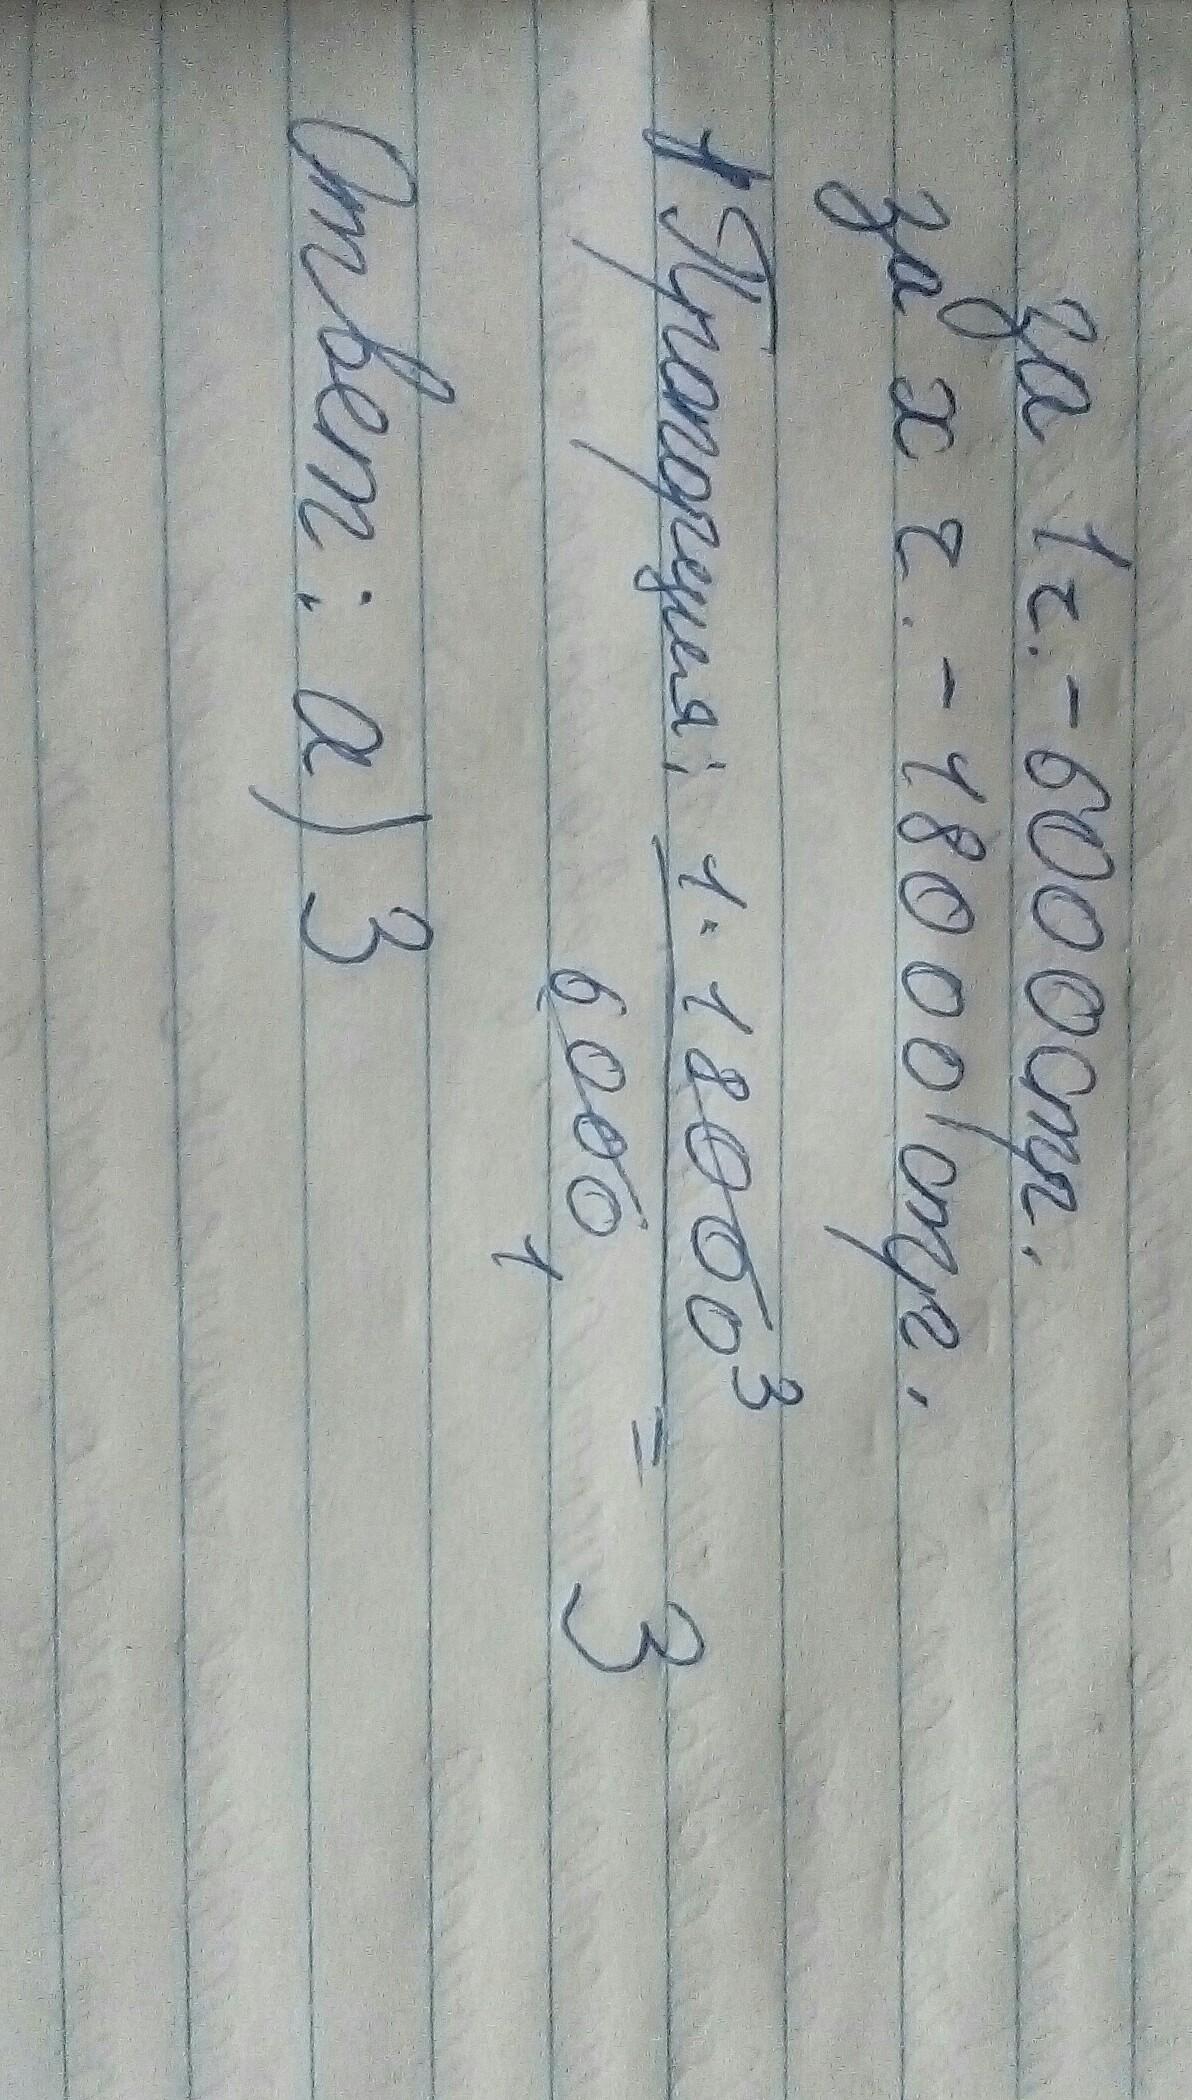 За 1 г. - 6000 стр.
За x г. - 18000 стр.
Пропорция: 1·18000 3 = 3
6000 1
Ответ: а) 3